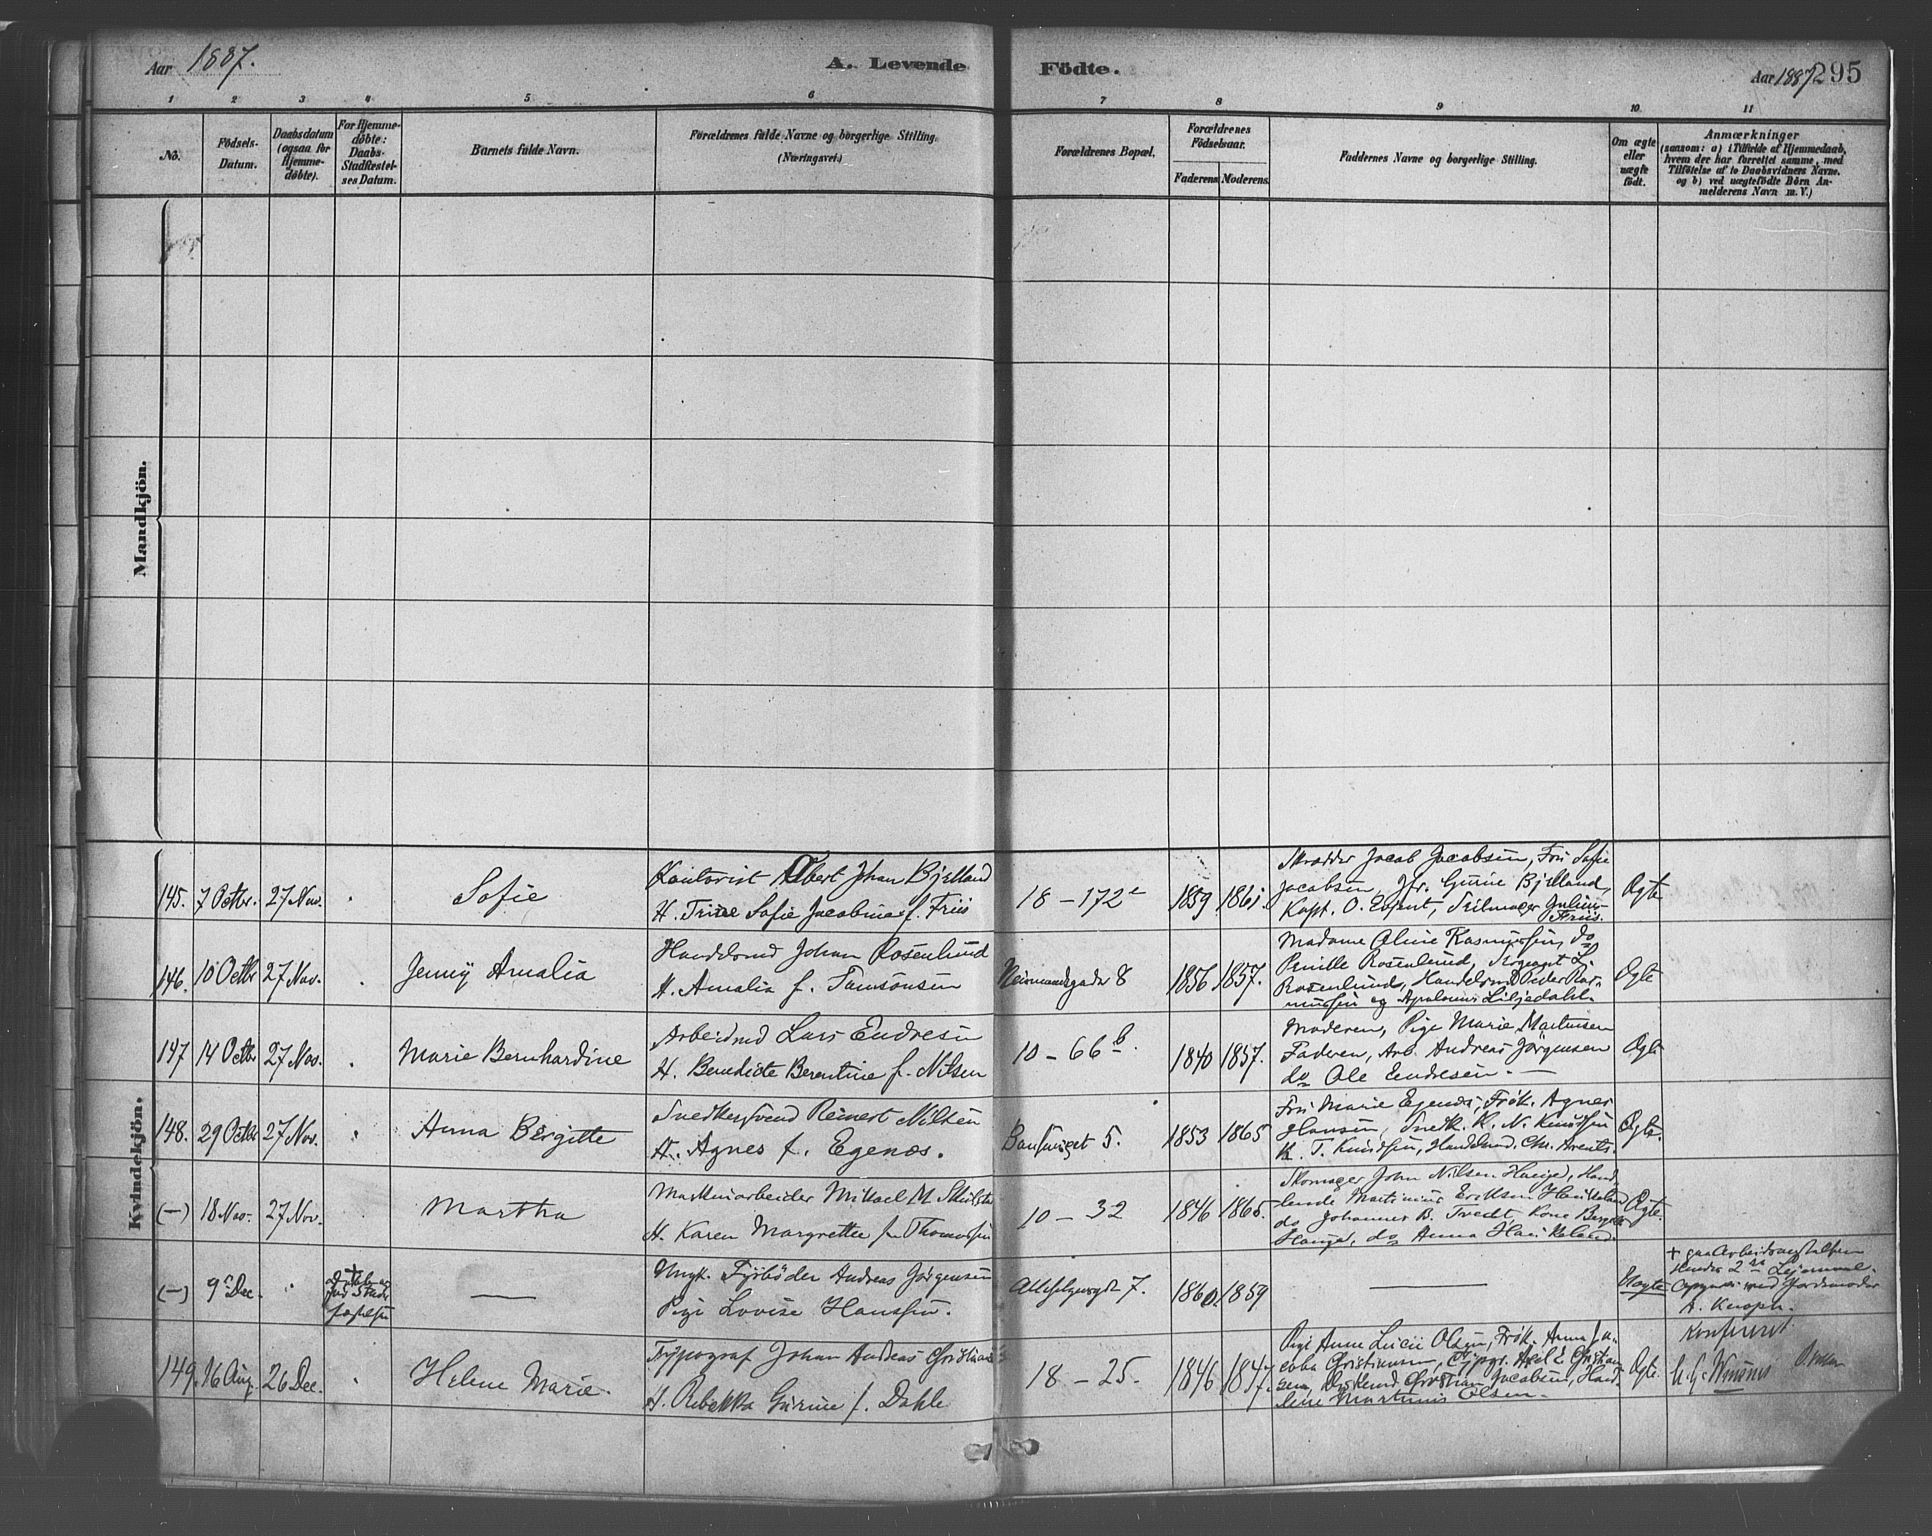 Aar 1887. A. Levende Födte. Aar 1887 295
1 2 3 4 5 6 7 8 9 10 11
No.
Födsels-
Datum.
Daabsdatum
(ogsaa for
Hjemme-
döbte).
For Hjemme-
döbte:
Daabs-
Stadfæstel-
ses Datum.
Barnets fulde Navn.
Forældrenes fulde Navne og borgerlige Stilling.
(Næringsvei.)
Forældrenes Bopæl.
Forældrenes
Födselsaar.
Faderens Moderens.
Faddernes Navne og borgerlige Stilling.
Om ægte
eller
uægte
födt.
Anmærkninger
(saasom: a) i Tilfælde af Hjemmedaab,
hvem der har forrettet samme, med
Tilföielse af to Daabsvidners Navne.
og b) ved uægtefödte Börn An-
melderens Navn m. V.)
Mandkjön.
Kvindekjön.
145. 7 Octbr. 27 Nov. Sofie
Kontorist Albert Johan Bjelland
H. Trine Sofie Jacobine f. Friis
18 - 172 1859 1861.
Skrædder Jacob Jacobsen, Fru Sofie
Jacobsen, Jfr. Gurine Bjelland,
Kapt. O. Seilmager Julius
Friis.
Ægte
146. 10 Octbr 27 Nov. Jenny Amalia
Handelsmd Johan Rosenlund
H. Amalia f. Tamsönsen
8 1856 1857.
Madame Aline Rasmussen, do
Pernille Rosenlund, Sergeant L.
Rosenlund, Handelsmd Peder Ras-
mussen og Liljedahl.
Ægte
147 14 Octbr 27 Nov. Marie Bernhardine
Arbeidsmd Lars Endresen
H. Benedicte Berentine f. Nilsen
10 - 66 b. 1840 1857.
Moderen, Pige Marie Martinsen
Faderen, Arb. Andreas Jörgensen
do Ole Endresen.
Ægte
148. 29 Octbr 27 Nov. Anna Birgitte
Snedkersvend Reinert Nilsen
H. Agnes f. Egenæs.
5. 1853 1865
Fru Marie Egenæs, Frök. Agnes
Hansen, Snedk. K. N. Knudsen
K. T. Knudsen, Handelsmd. Chr. Arents.
Ægte.
(-) 18 Nov. 27 Nov. Martha
Maskinarbeider Mikael M.
H. Karen Margrethe f. Thomassen
10 - 32 1846 1865.
Skomager John Nilsen Hauge, Hand-
lende Martinius Eriksen
do Johannes B. Tvedt, Kone
Hauge, do Anna
Ægte.
(-) 9 Dec.
Död
för Stad-
fæstelsen
Ungk. Fyrböder Andreas Jörgensen
Pige Lovise Hanssen.
7. 1860. 1859
Uægte
+ paa Arbeidsanstalten
Hendes 2det Leiermaal.
Opgivet ved Jordemoder
A. Knoph.
149. 16 Aug. 26 Dec. Helene Marie.
Typograf Johan Andreas Christiansen
H. Rebekka Gurine f. Dahle
18 - 25. 1846 1847.
Pige Anne Olsen, Frök. Anna Ja-
coba Christiansen, Typogr. Axel E. Christian-
sen, Christian Jacobsen, Hand-
lende Martinius Olsen.
Ægte.
Konfereret